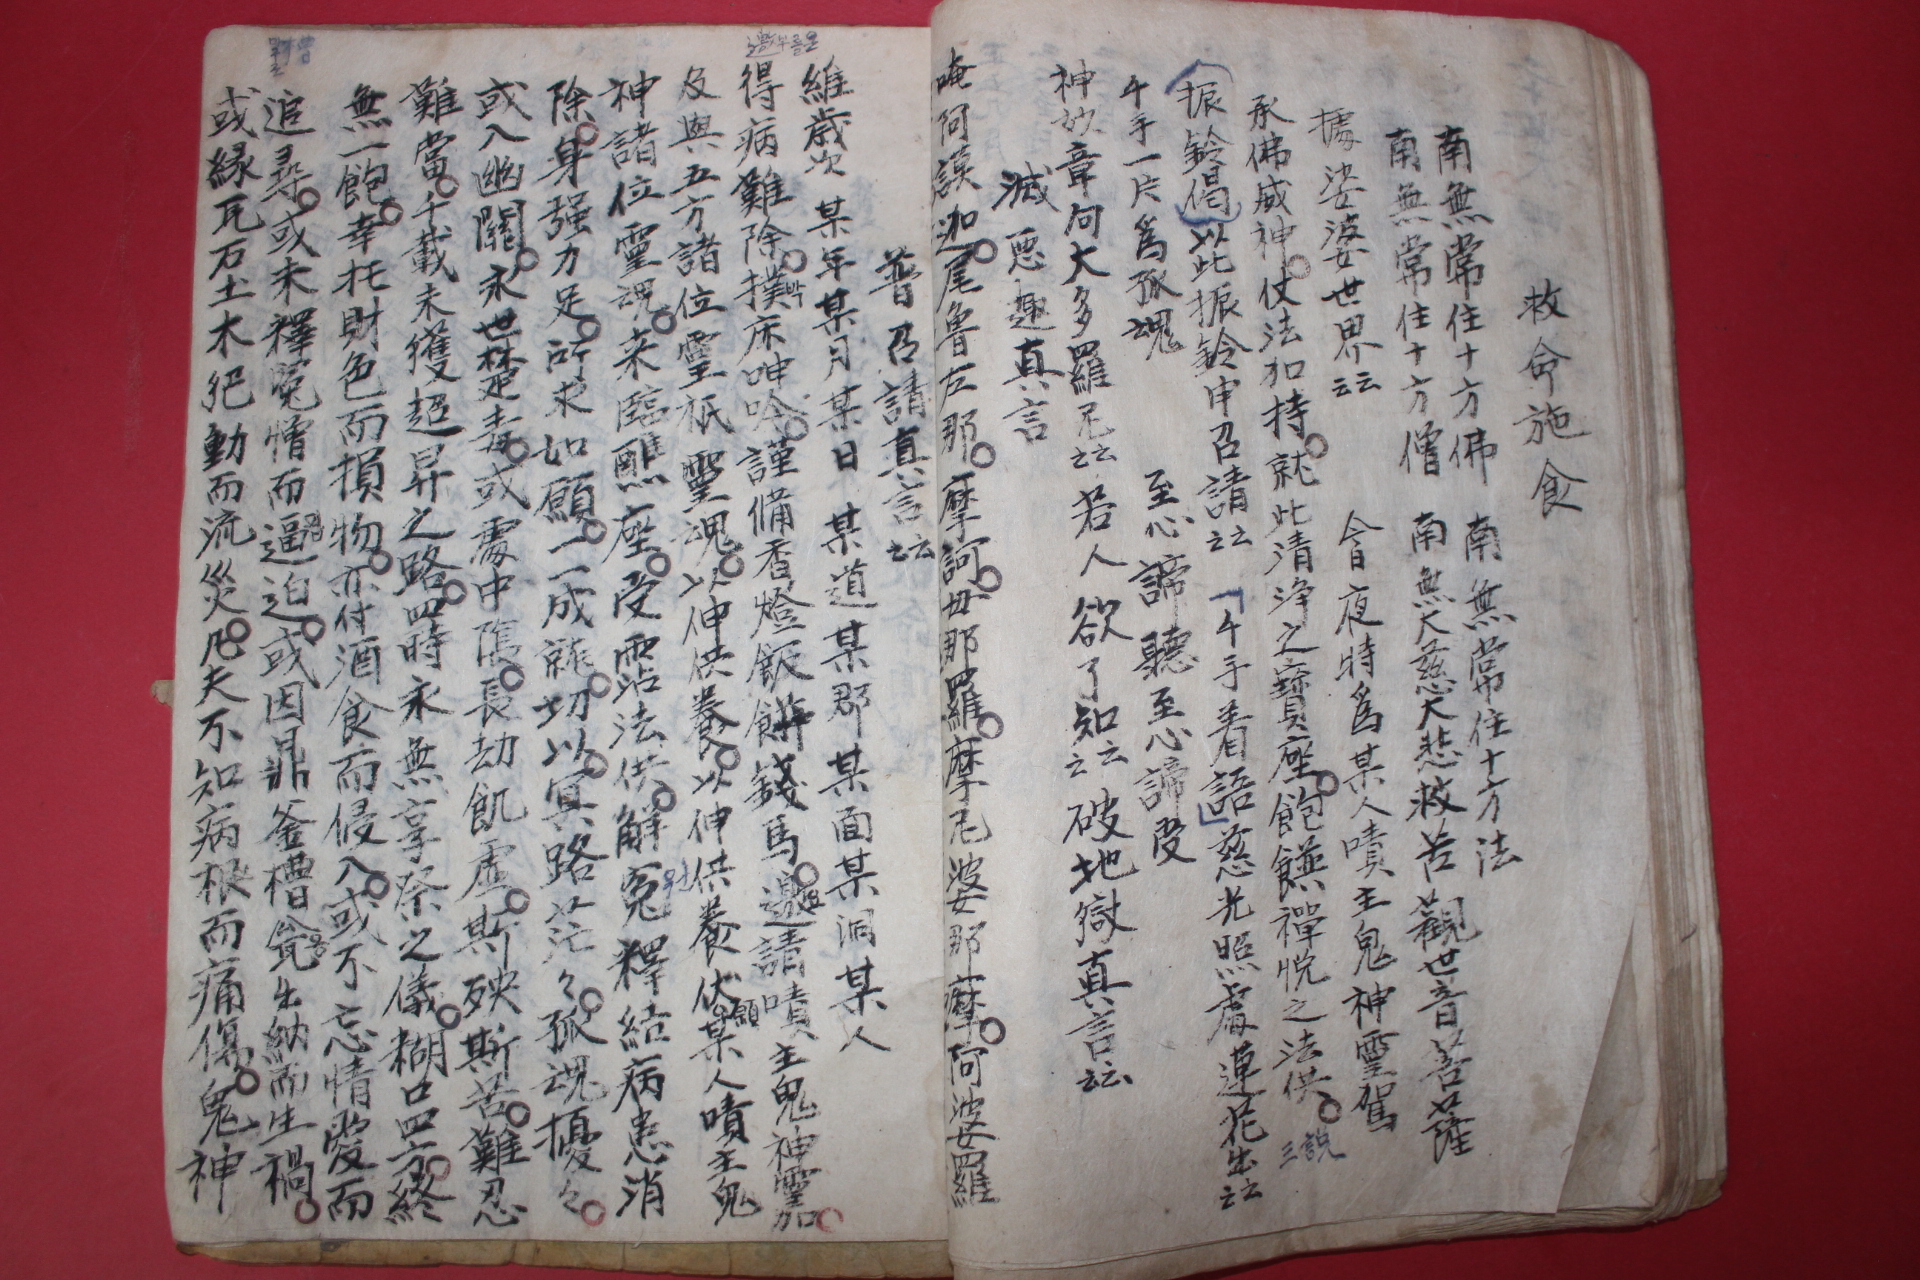 救命施食
南無常住十方佛 南無常住十方法
南無常住十方僧 南無大慈大悲救苦觀世音菩薩
據娑婆世界云云 今日夜時爲某人嘖主鬼神靈駕
承佛威神仗法加持就此清淨之寶座飽饍禪悅之法供 三說
振鈴偈 以此振鈴申召請云云 千手着語 慈光照處蓮花出云云
千手一片爲孤魂 至心諦聽至心諦受
神妙章句大多羅尼云云 若人欲了知云云 破地獄真言云云
滅惡趣真言
唵阿謨迦尾魯左那摩訶毋那羅摩尼婆那摩阿婆羅
普召請真言云云
維歲次 某年某月某日 某道某郡某面某洞某人
得病難除撲박床呻吟謹備香燈飯餠錢馬邀請嘖主鬼神靈加
及與五方諸位靈祇靈魂以伸供養以伸供養伏願某人嘖主鬼
神諸位靈魂来臨醮座受霑法供解冤釋結病患消
除身强力足所求如願一一成就切以冥路茫々孤魂擾々
或入幽關永世楚毒或處中隂長劫飢虛斯殃斯苦難忍
難當千載未獲超昇之路四時永無享祭之儀糊口四方終
無一飽幸托財色而損物亦付酒食而侵入或不忘情愛而
追尋或未釋冤憎而逼迫或因鼎釜槽瓮出納而生禍
或緣瓦石土木犯動而流災凡夫不知病根而痛傷鬼神